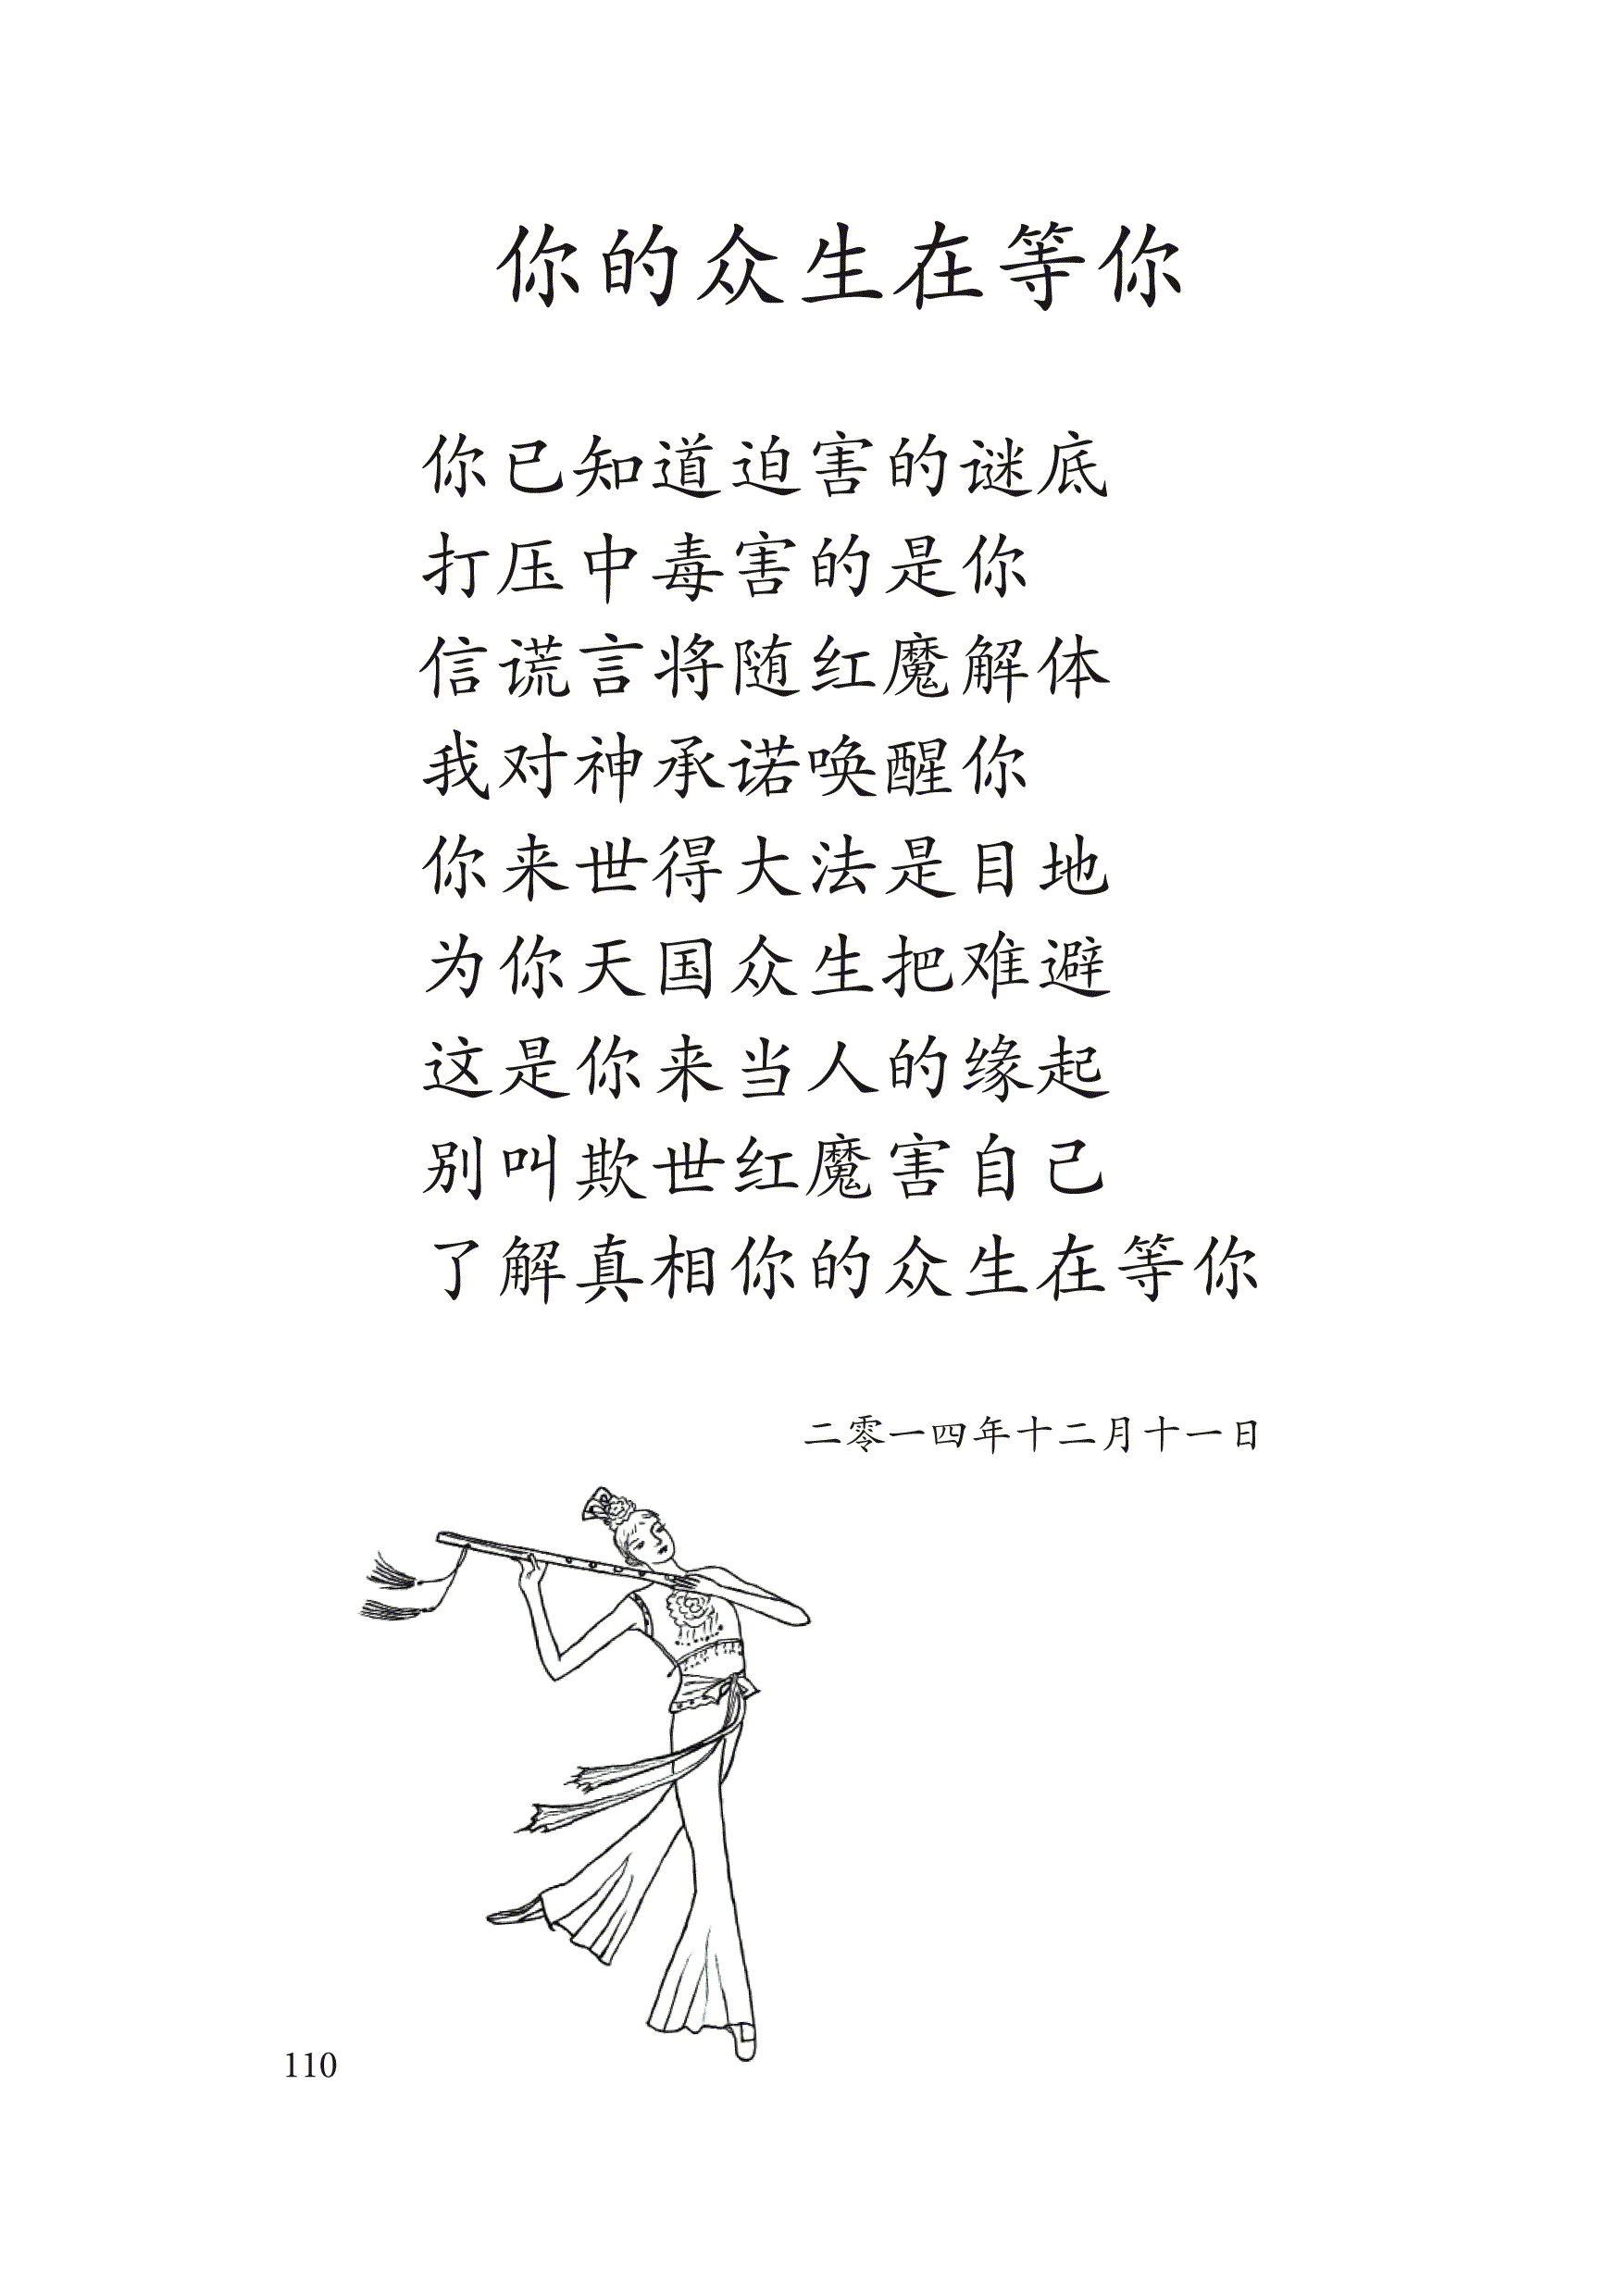 你的众生在等你
你已知道迫害的谜底
打压中毒害的是你
信谎言将随红魔解体
我对神承诺唤醒你
你来世得大法是目地
为你天国众生把难避
这是你来当人的缘起
别叫欺世红魔害自己
了解真相你的众生在等你
二零一四年十二月十一日
110